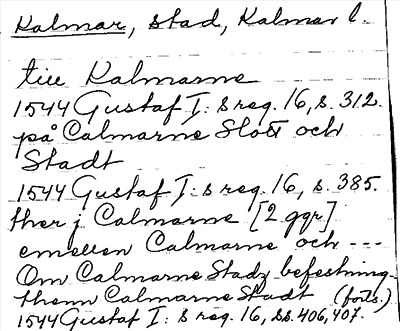 Kalmar, stad, Kalmar l.
till Kalmarne
1544 Gustaf I:s reg. 16, s. 312.
på Calmarne Slott och
Stadt
1544 Gustaf I:s reg. 16, s. 385.
ther j Calmarne [2 ggr]
emellen Calmarne och ---
Om Calmarne Stadz befestning
thenn Calmarne Stadt (forts.)
1544 Gustaf I:s reg. 16, ss. 406, 407.